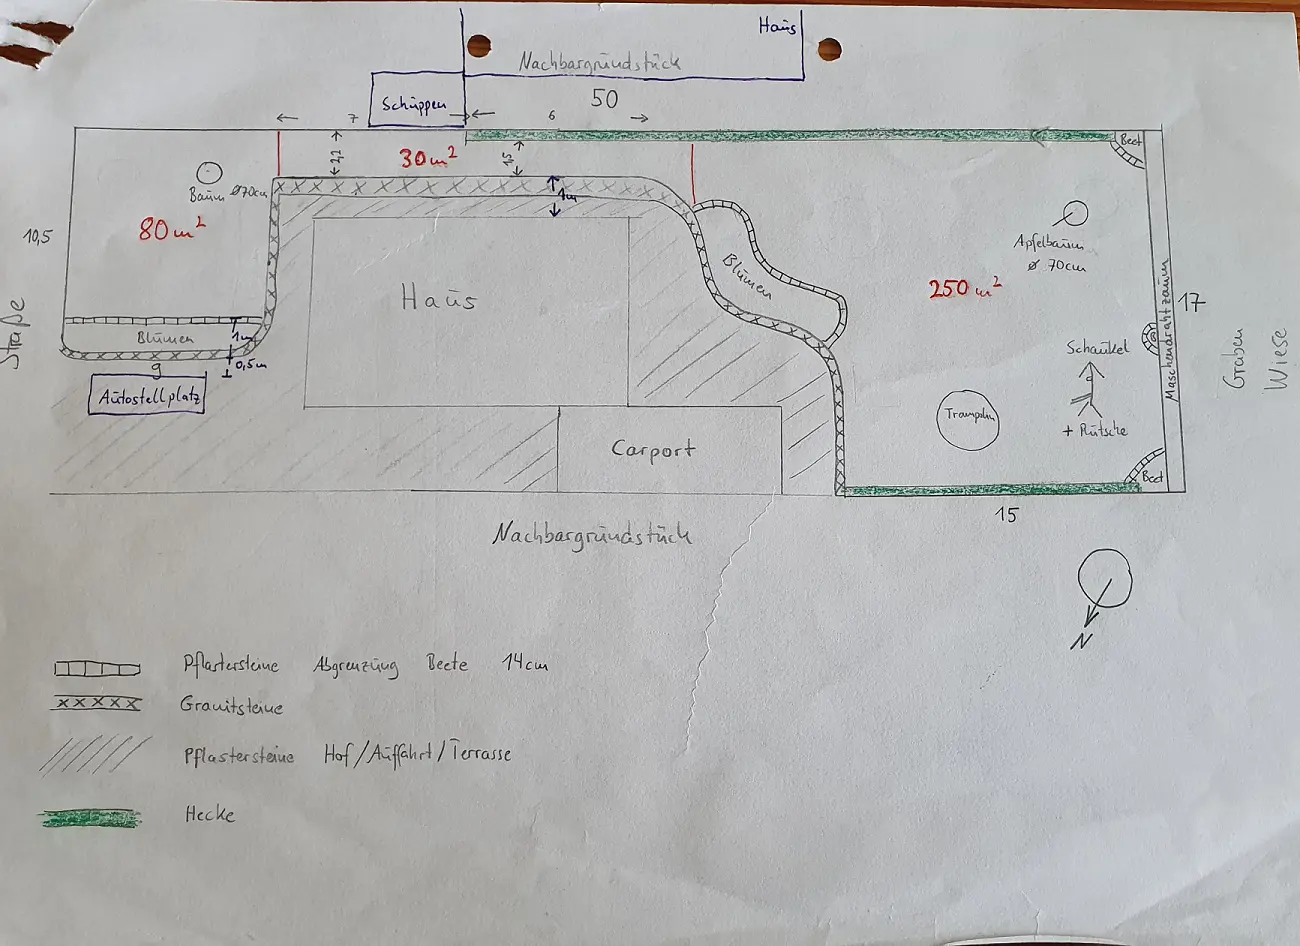 Haus
Nachbargrundstück
Schuppen
50
7
6
Beet
2,2
30 m²
1,5
Baum ⌀70cm
1m
80 m²
10,5
Straße
Haus
Blumen
Apfelbaum
⌀ 70cm
250 m²
17
Maschendrahtzaun
Graben
Wiese
Blumen
1m
0,5m
9
Autostellplatz
Schaukel
+ Rutsche
Trampolin
Carport
Beet
15
Nachbargrundstück
N
Pflastersteine Abgrenzung Beete 14cm
Granitsteine
Pflastersteine Hof/Auffahrt/Terrasse
Hecke